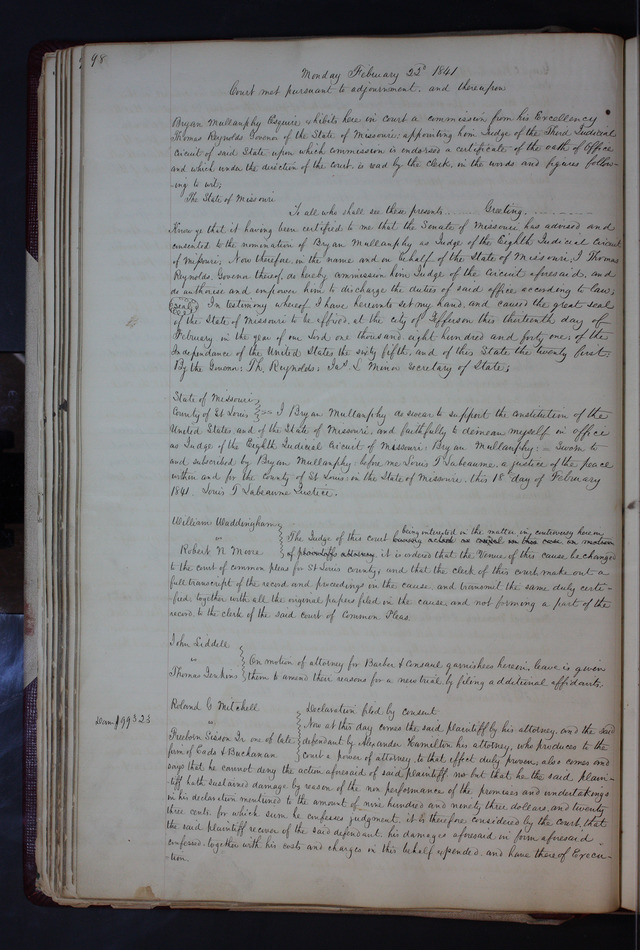 98
Monday February 23d 1841
Court met pursuant to adjournment. and thereupon
Bryan Mullanphy Esquire exhibits here in court a commission from his Excellency
Thomas Reynolds Govenor of the State of Missouri, appointing him Judge of the Third Judicial
Circuit of said State upon which commission is endorsed a certificate of the oath of office
and which under the direction of the court, is read by the clerk, in the words and figures follow-
ing to wit;
The State of Missouri
To all who shall see these presents Greeting.
Know ye that it having been certified to me that the Senate of Missouri has advised and
consented to the nomination of Bryan Mullanphy as Judge of the Eighth Judicial Circuit
of Missouri; Now therefore, in the name and on behalf of the State of Missouri; I Thomas
Reynolds, Govenor thereof, do hereby commission him Judge of the Circuit aforesaid, and
do authorise and impower him to discharge the duties of said office according to law;
Seal In testimony whereof I have hereunto set my hand, and caused the great seal
of the State of Missouri to be affixed, at the city of Jefferson this thirteenth day of
February in the year of our Lord one thousand eight hundred and forty one; of the
Independance of the United States the sixty fifth, and of this State the twenty first.
By the Govenor. Th. Reynolds; Jas L Minor Secretary of State;
State of Missouri,
County of St Louis I Bryan Mullanphy do swear to support the constitution of the
United States and of the State of Missouri, and faithfully to demean myself in office
as Judge of the Eighth Judicial Circuit of Missouri. Bryan Mullanphy. Sworn to
and subscribed by Bryan Mullanphy before me Louis T Labeaume, a justice of the peace
within and for the County of St Louis in the State of Missouri, this 18 day of February
1841. Louis T Labeaume Justice.
William Waddingham
vs
Robert N Moore
being interested in the matter in controversy herein,
The Judge of this court
of attorney it is ordered that the Venue of this cause be changed
to the court of common pleas for St Louis county, and that the clerk of this court make out a
full transcript of the record and proceedings in the cause, and transmit the same duly certi-
fied, together with all the original papers filed in the cause and not forming a part of the
record, to the clerk of the said court of Common Pleas
John Liddell
vs
Thomas Jenkins
On motion of attorney for Barber & Consaul garnishees herein, leave is given
them to amend their reasons for a new trial, by filing additional affidavits.
Roland C Mitchell
vs
Freeborn Sisson Jr one of late
firm of Eads & Buchanan
Declaration filed by consent
Dam $993 23
Now at this day comes the said plaintiff by his attorney, and the said
defendant by Alexander Hamilton his attorney, who produces to the
Court a power of attorney, to that effect duly proven, also comes and
says that he cannot deny the action aforesaid of said plaintiff nor but that he the said plain-
tiff hath sustained damage by reason of the non performance of the promises and undertakings
in his declaration mentioned to the amount of nine hundred and ninety three dollars, and twenty
three cents for which sum he confesses judgment. it is therefore considered by the Court, that
the said plaintiff recover of the said defendant, his damages aforesaid in form aforesaid
confessed, together with his costs and charges in this behalf expended, and have thereof Execu-
tion.